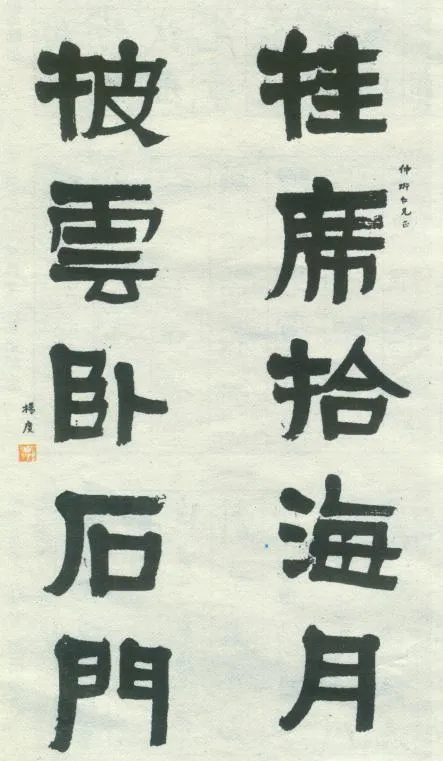 挂席拾海月
仲仁兄正
披雲卧石門
楊度